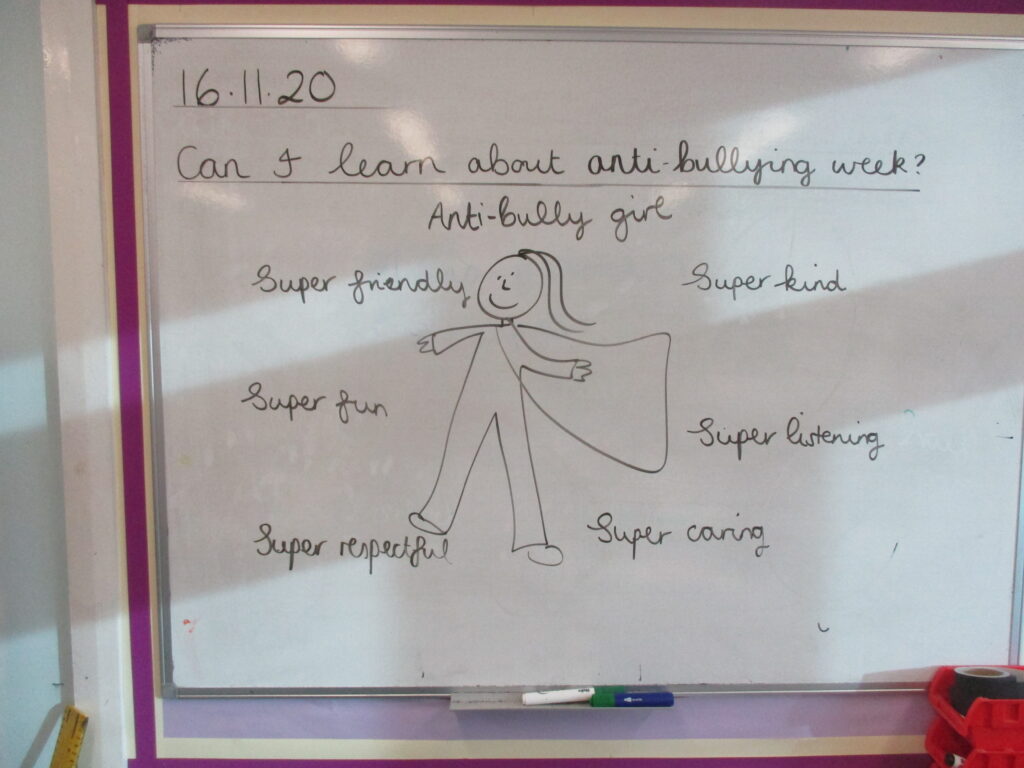 16.11.20
Can I learn about anti-bullying week?
Anti-bully girl
Super friendly
Super kind
Super fun
Super listening
Super respectful
Super caring